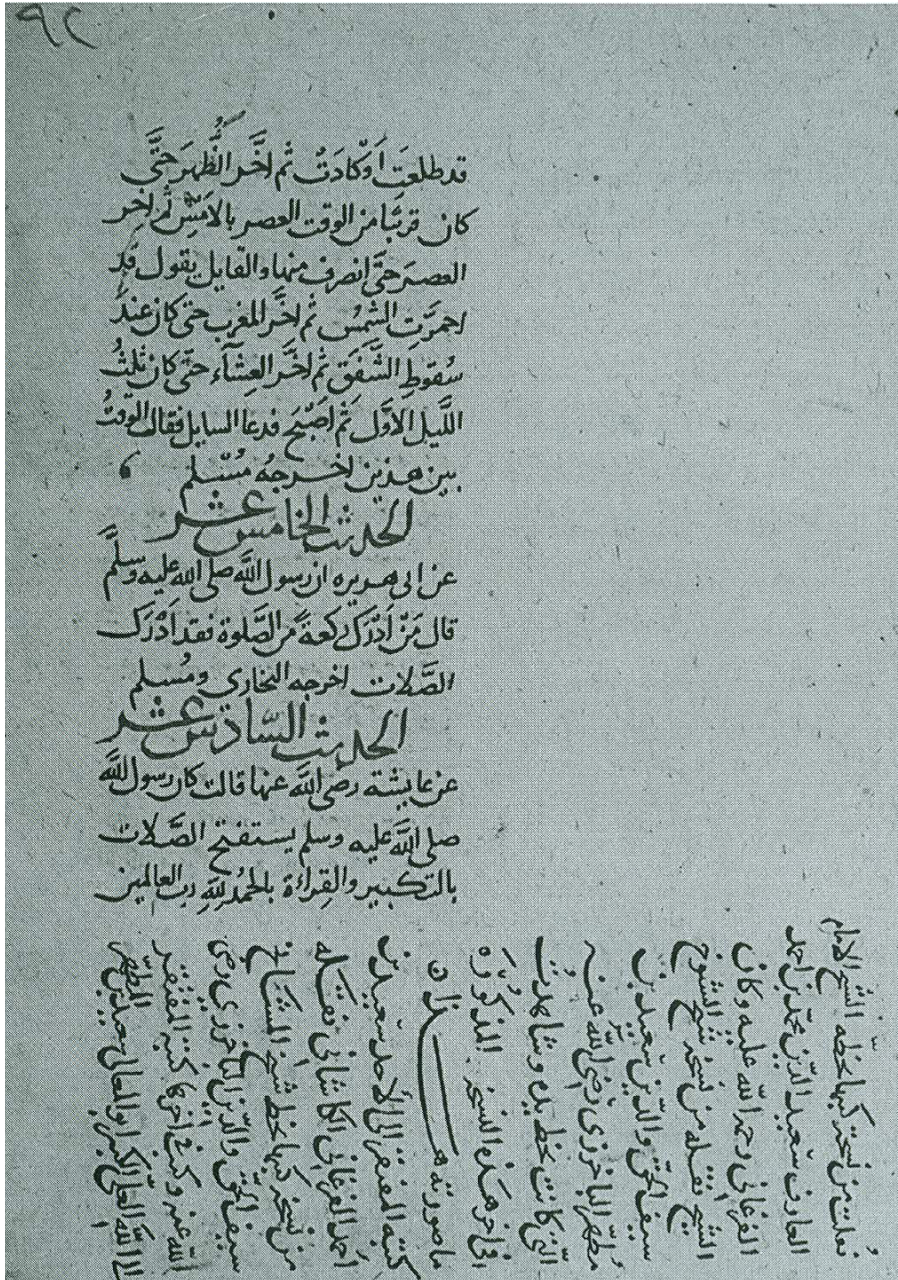 ٩٢
قد طلعتِ اَوْ كادَتْ ثم اَخَّر الظُّهرَ حَتَّى
كان قريبًا من الوقت العصر بالامس ثم اخر
العصرَ حَتَّى انصرف منها والقايل يقول قد
احمرَّتِ الشمسُ ثم اخَّر المغرب حتى كان عند
سُقوطِ الشَّفَق ثم اخَّر العِشآء حتّى كان ثلثُ
اللَّيلِ الاوَّلِ ثم اصْبَحَ فدعا السايل فقال الوقتُ
بين هذين اخرجهُ مُسْلم
الحديث الخامس عشر
عن ابى هريره ان رسول اللّه صلى الله عليه وسلم
قال مَنْ اَدْرَكَ ركعةً من الصَّلوة فقد اَدْرَكَ
الصَّلات اخرجه البخاري ومُسلم
الحديث السّادس عشر
عن عايشة رضى اللّه عنها قالت كان رسول اللّه
صلى اللّه عليه وسلم يستفتح الصَّلات
بالتكبير والقِراءة بالحمدُ للهِ رب العالمين
نقلت من نسخة كتبها بخطّه الشيخ الامام
العارف سعيد الدّين محمّد بن احمد
الفرغانى رحمة اللّه عليه وكان
الشيخ نقله من نسخة شيخ الشيوخ
سيف الحق والدّين سعيد بن
مُطهّر الباخرزى رضى اللّه عنه
الّتى كانت بخط يده وشاهدت
فى اخر هذه النسخة المذكورَة
ما صورته هـذا
كتبه المفتقر الى الأحد سعيد بن
احمد الفرغانى الكاشانى نقله
من نسخة كتبها بخط شيخ المشايخ
سيف الحق والدّين الباخرزى رضى
اللّه عنه وكتب فى اخرها كتبه المفتقر
الى اللّه العلىّ الكبير ابو المعالى سعيد بن المطهّر